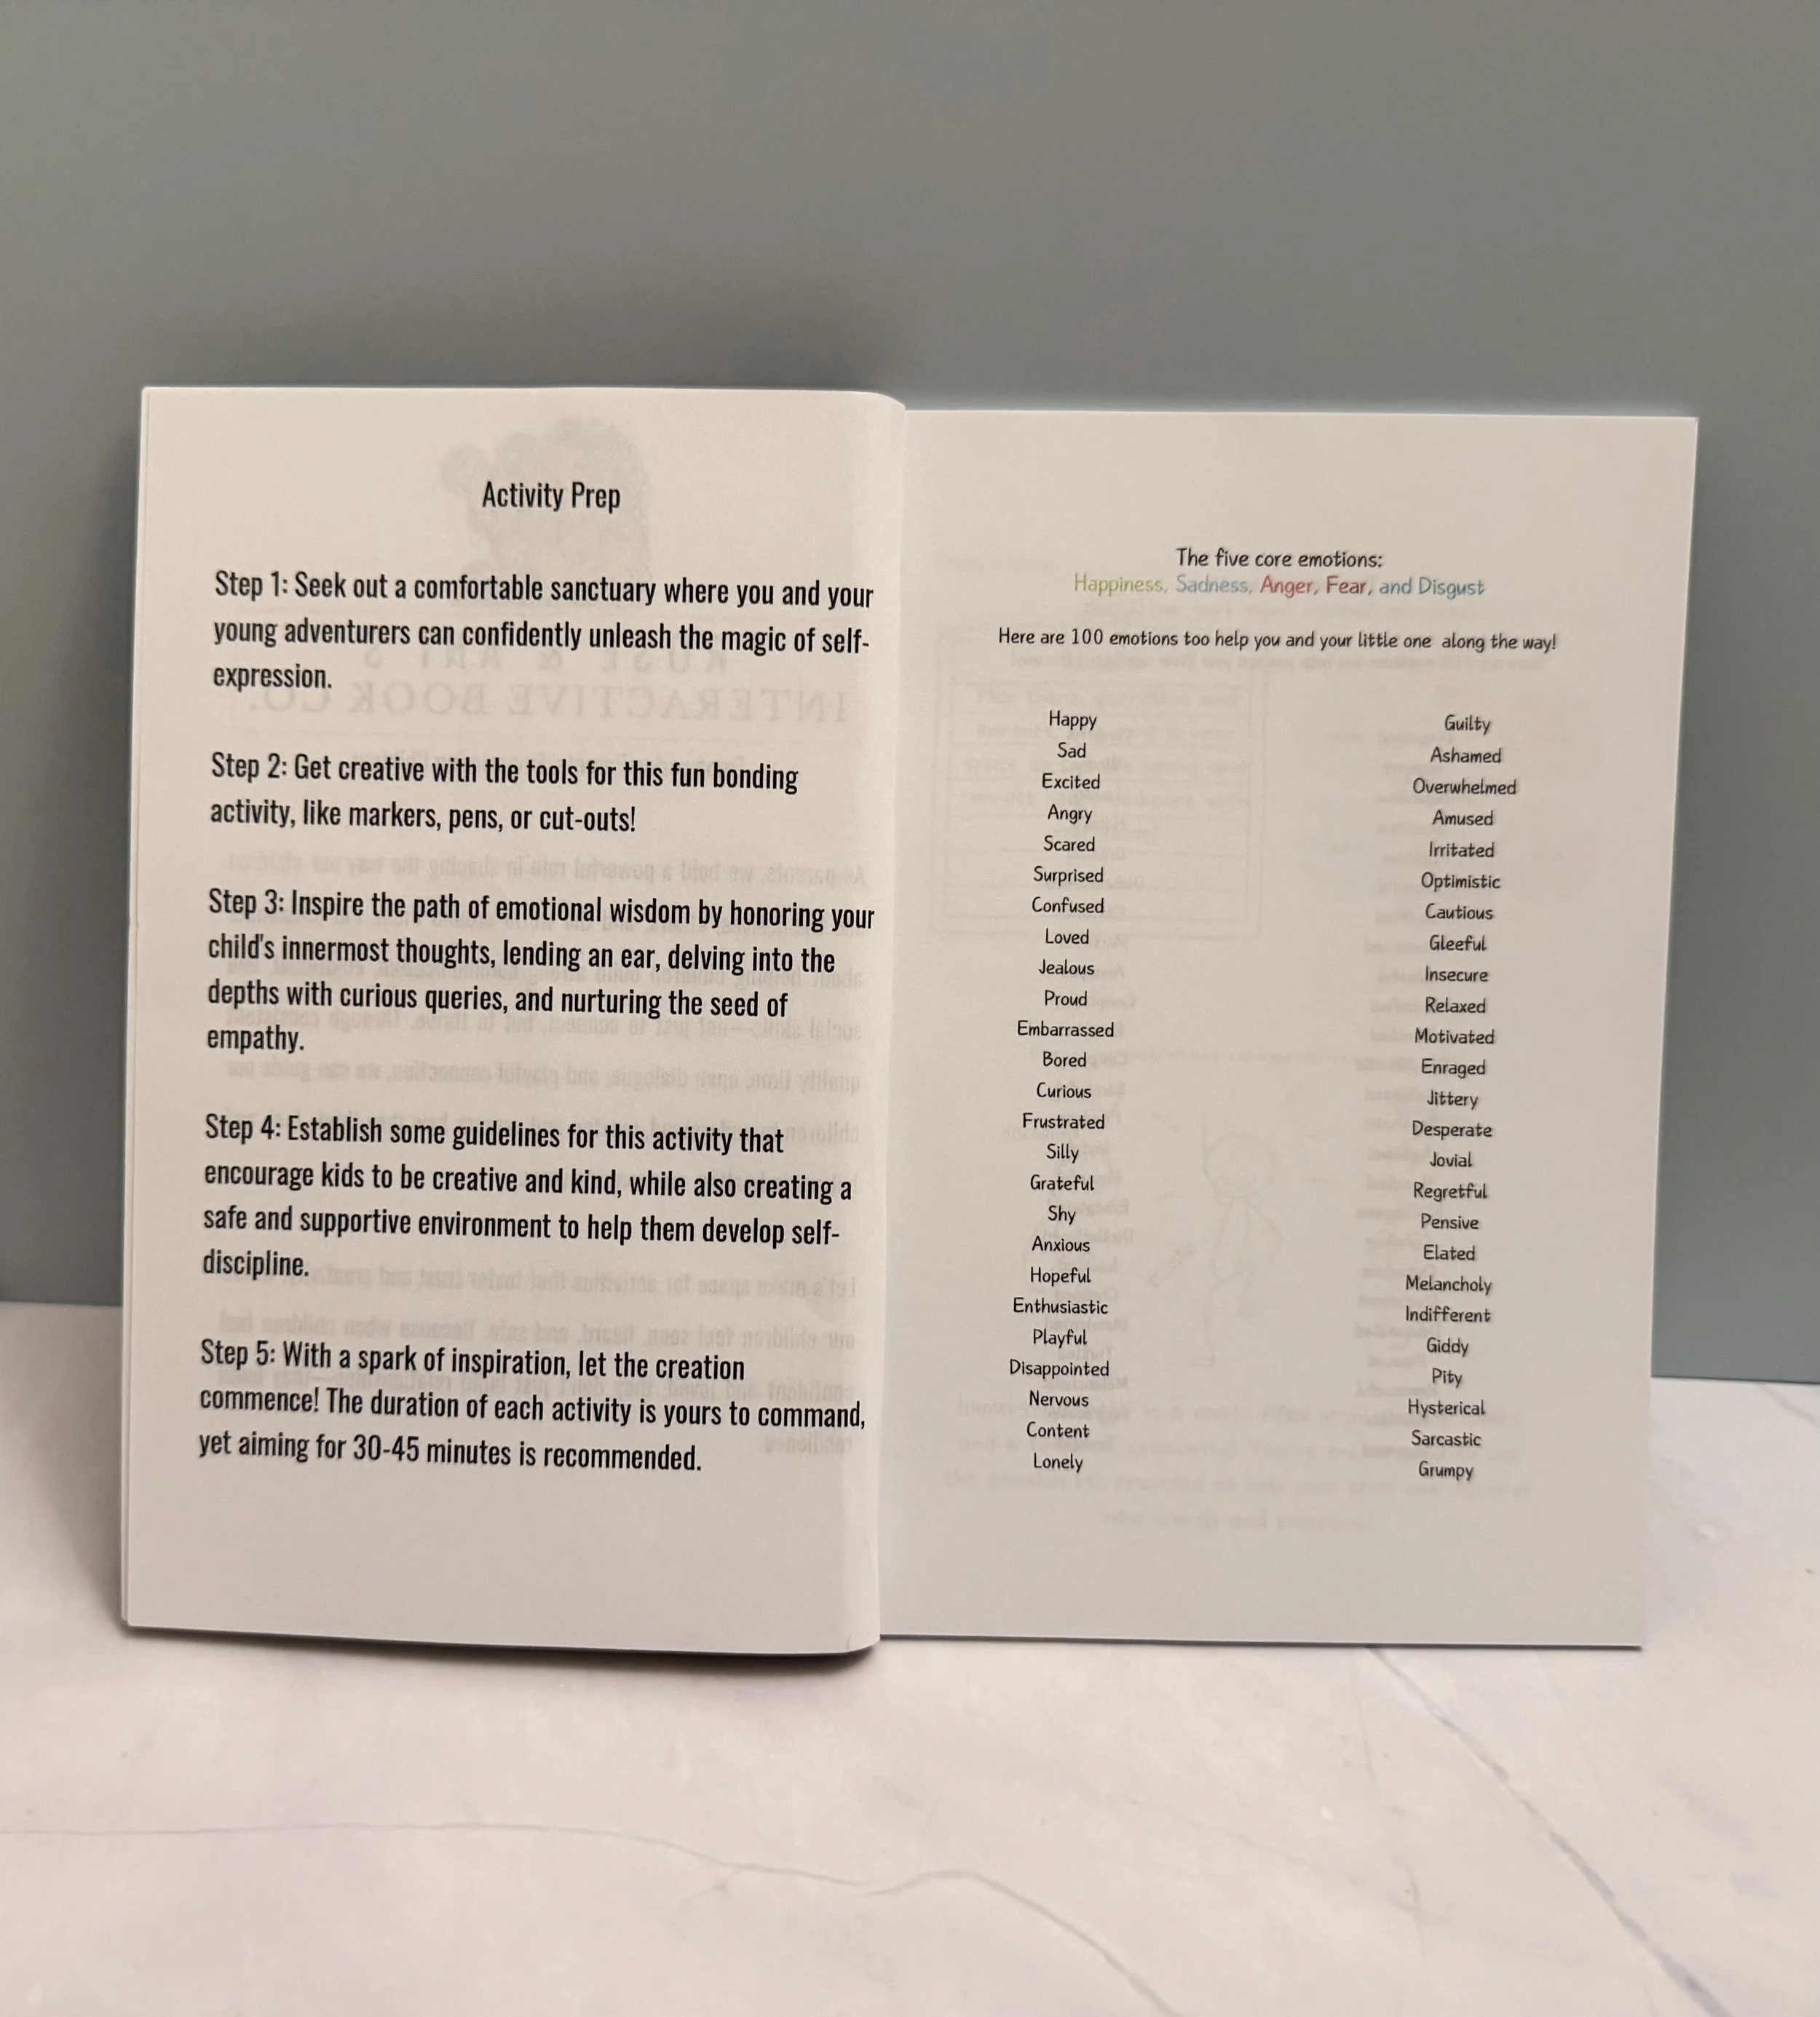 Activity Prep
Step 1: Seek out a comfortable sanctuary where you and your
young adventurers can confidently unleash the magic of self-
expression.
Step 2: Get creative with the tools for this fun bonding
activity, like markers, pens, or cut-outs!
Step 3: Inspire the path of emotional wisdom by honoring your
child's innermost thoughts, lending an ear, delving into the
depths with curious queries, and nurturing the seed of
empathy.
Step 4: Establish some guidelines for this activity that
encourage kids to be creative and kind, while also creating a
safe and supportive environment to help them develop self-
discipline.
Step 5: With a spark of inspiration, let the creation
commence! The duration of each activity is yours to command,
yet aiming for 30-45 minutes is recommended.
The five core emotions:
Happiness, Sadness, Anger, Fear, and Disgust
Here are 100 emotions too help you and your little one along the way!
Happy
Sad
Excited
Angry
Scared
Surprised
Confused
Loved
Jealous
Proud
Embarrassed
Bored
Curious
Frustrated
Silly
Grateful
Shy
Anxious
Hopeful
Enthusiastic
Playful
Disappointed
Nervous
Content
Lonely
Guilty
Ashamed
Overwhelmed
Amused
Irritated
Optimistic
Cautious
Gleeful
Insecure
Relaxed
Motivated
Enraged
Jittery
Desperate
Jovial
Regretful
Pensive
Elated
Melancholy
Indifferent
Giddy
Pity
Hysterical
Sarcastic
Grumpy